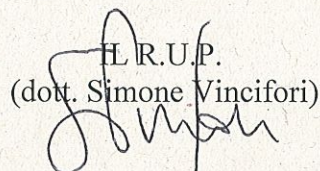 IL R.U.P.
(dott. Simone Vincifori)